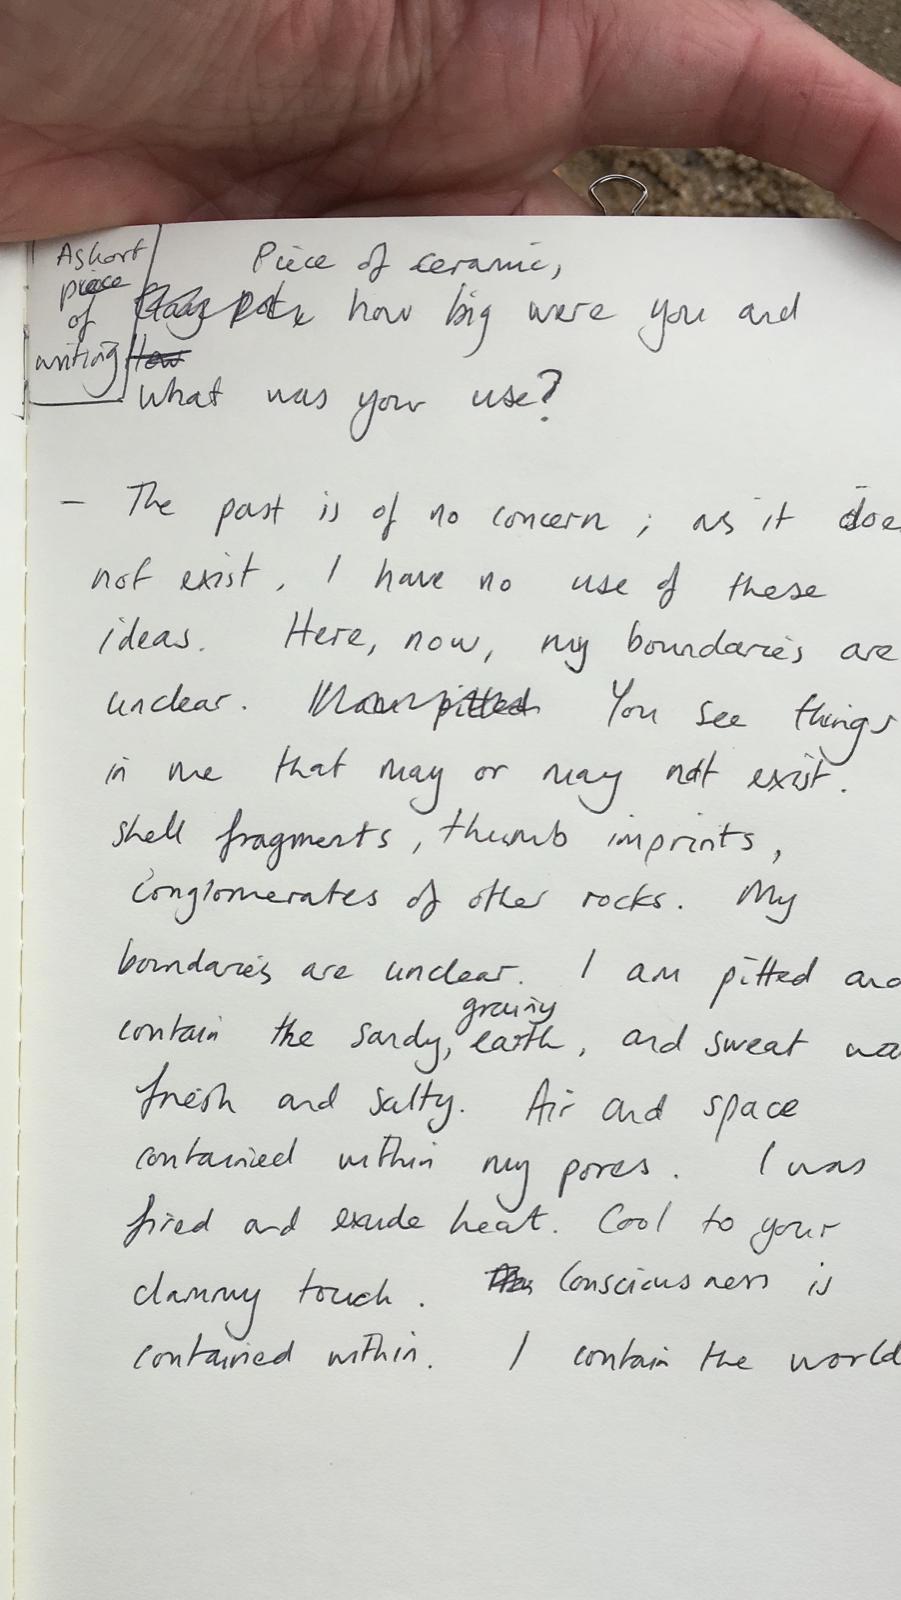 A short
piece
of
writing
Piece of ceramic,
Clay pot, how big were you and
How
What was your use?
– The past is of no concern ; as it doe
not exist. I have no use of these
ideas. Here, now, my boundaries are
unclear. pitted You see things
in me that may or may not exist.
shell fragments, thumb imprints,
conglomerates of other rocks. My
boundaries are unclear. I am pitted and
grainy
contain the sandy, earth, and sweat wa
fresh and salty. Air and space
contained within my pores. I was
fired and exude heat. Cool to your
clammy touch. Consciousness is
contained within. I contain the world